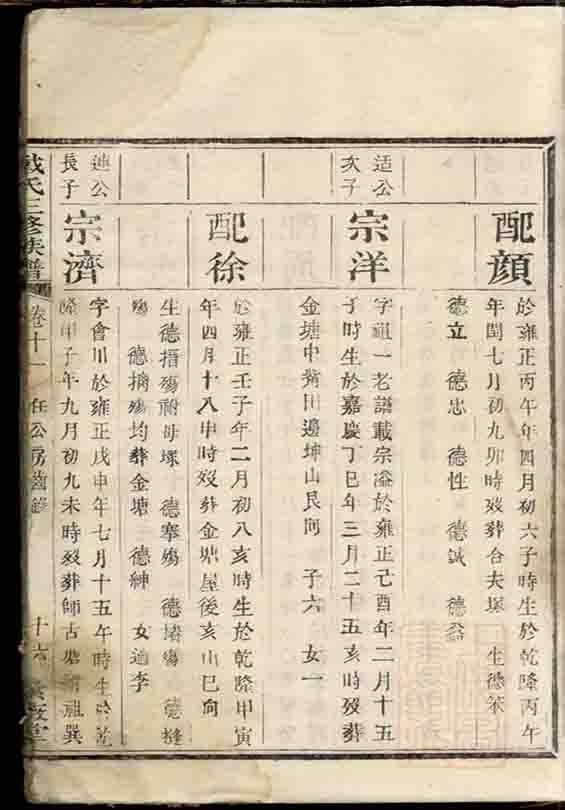 配顏
於雍正丙午年四月初六子時生於乾隆丙午
年閏七月初九卯時歿葬台夫塚 生德
德立 德忠 德性 德誠 德
适公
次子
宗洋
字祖一老譜載宗溢於雍正己酉年二月十五
子時生於嘉慶丁巳年三月二十五亥時歿葬
金塘中 田邊坤山艮向 子六 女一
配徐
於雍正壬子年二月初八亥時生於乾隆甲寅
年四月十八申時歿葬金塘屋後亥山巳向
生德搢殤祔母塚 德搴殤 德 殤 德縫
殤 德摛殤均葬金塘 德紳 女適李
連公
長子
宗濟
字會川於雍正戊申年七月十五午時生於乾
隆甲子年九月初九未時歿葬師古 祖巽
戴氏三修族譜 卷十一 任公房齒錄 十六